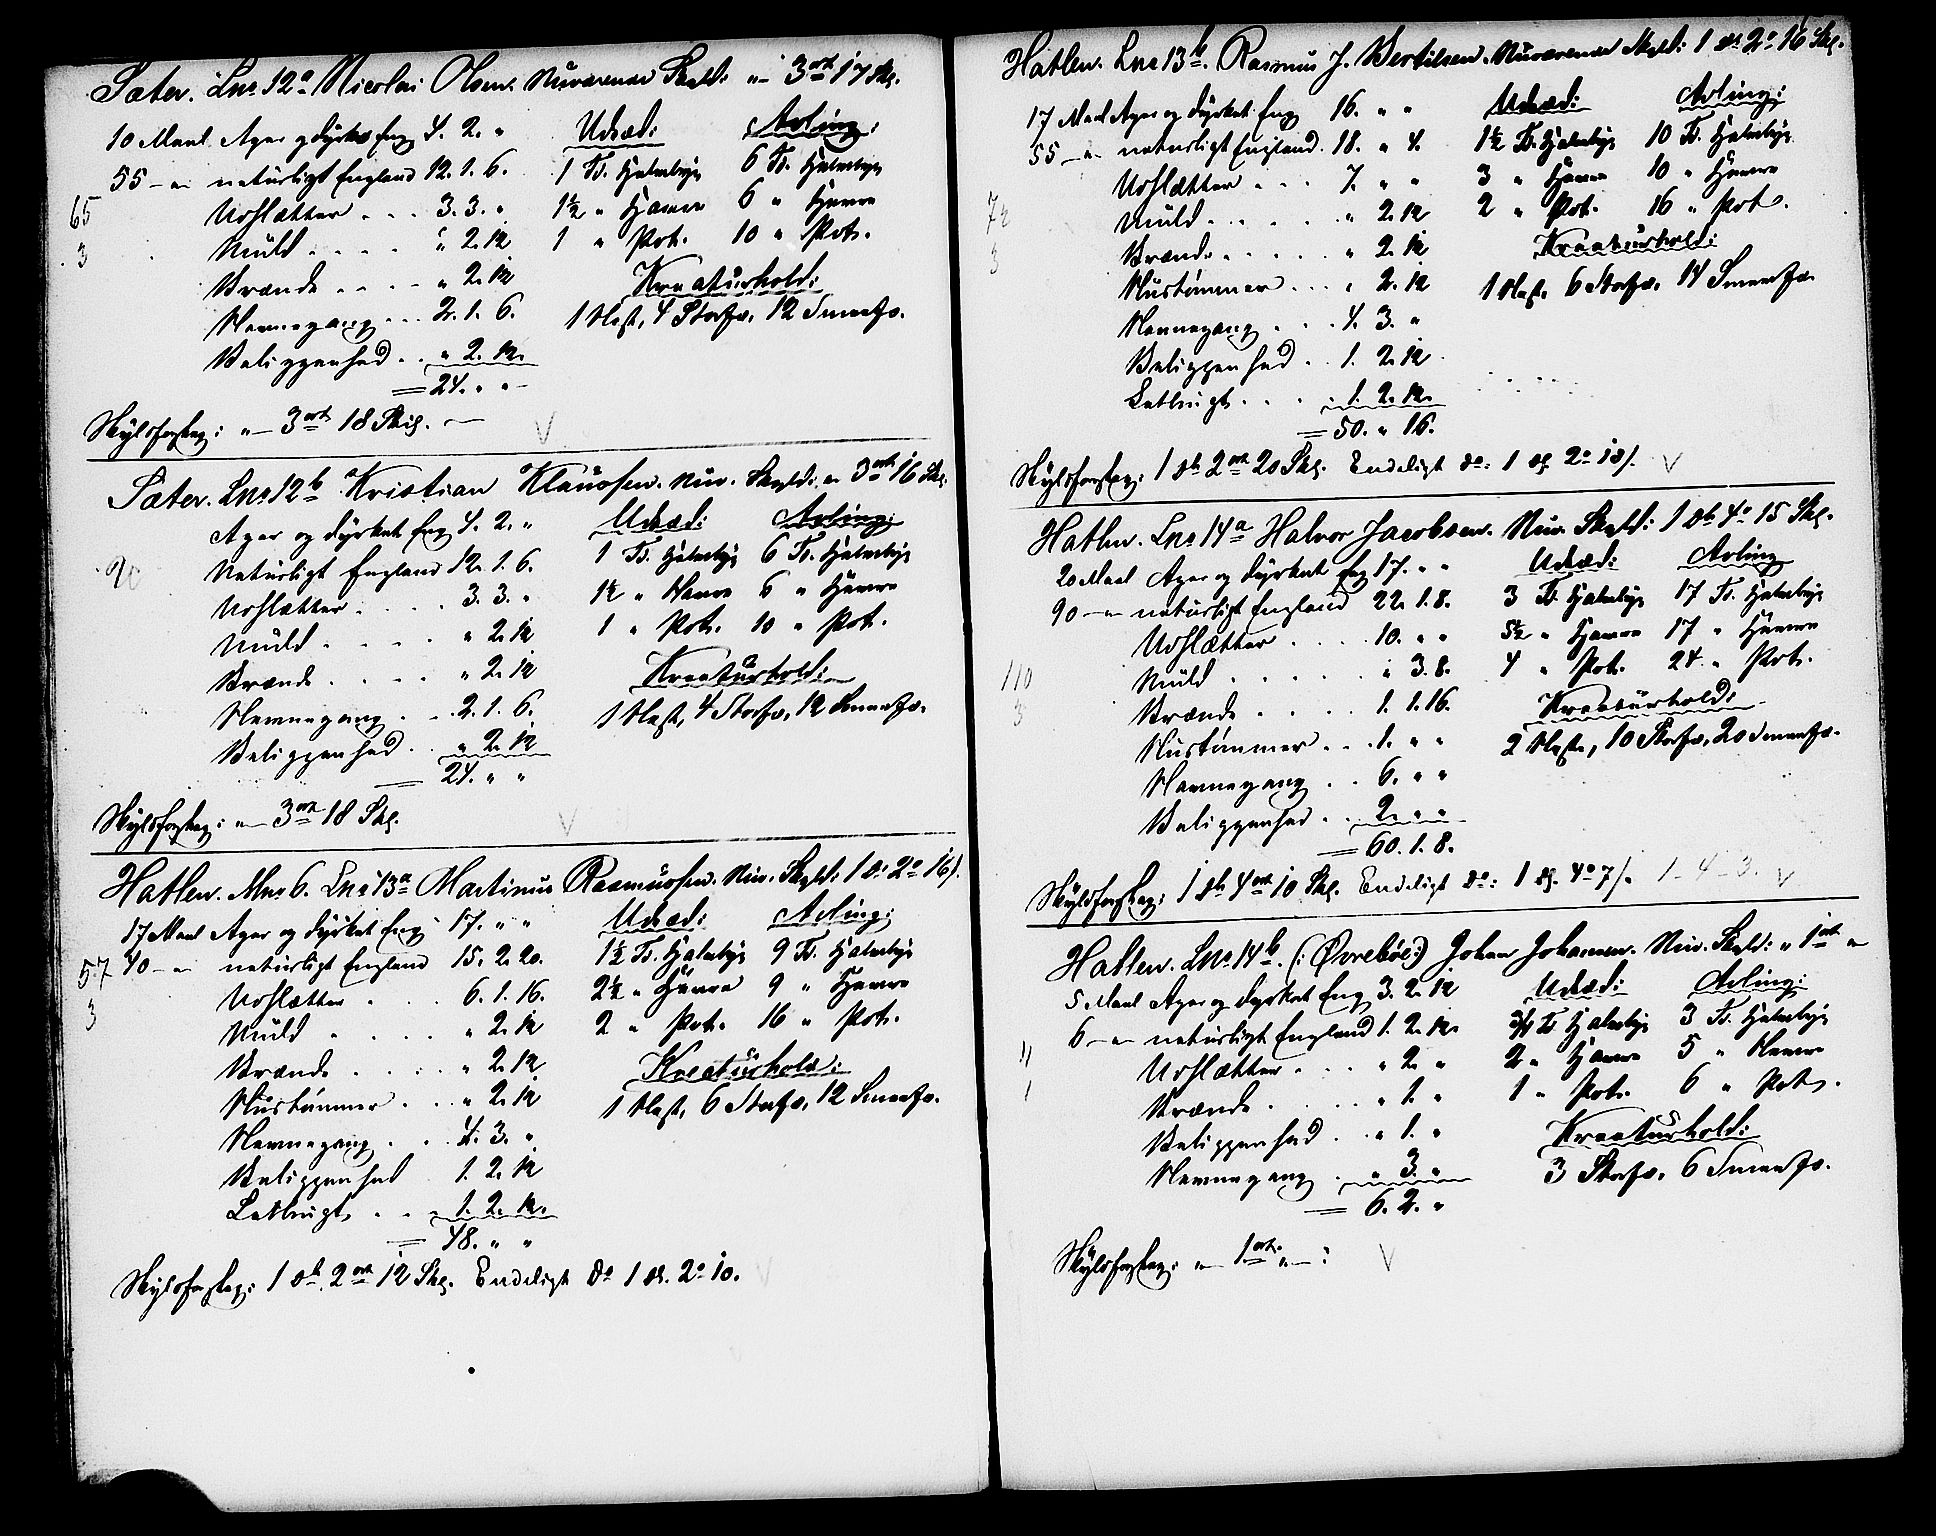 Sæter. Lnr 12a Nicolai Olsen. Nuværende Skyld: „ 3 ort 17 Sk.
10 Maal Ager og dyrket Eng 4. 2. „ Udsæd: Avling:
55 – „ – naturligt England 12. 1. 6. 1 Td. Halvbyg 6 Td. Halvbyg
65 Uoslætter . . . 3. 3. „ 1½ „ Havre 6 „ Havre
3 Muld . . . . „ 2. 12 1 „ Pot. 10 „ Pot.
Brænde . . . . „ 2. 12 Kreaturhold:
Havnegang . . . 2. 1. 6. 1 Hest, 4 Storfæ, 12 Smaafæ.
Beliggenhed . . „ 2. 12.
= 24. „ „
Skyldforslag: „ – 3 ort 18 Skig. –
Sæter. Lnr 12b Kristian Klausen. Nuv. Skyld: „ 3 ort 16 Sk.
Ager og dyrket Eng 4. 2. „ Udsæd: Avling:
Naturligt England 12. 1. 6. 1 Td. Halvbyg 6 Td. Halvbyg
Uoslætter . . . . 3. 3. „ 1½ „ Havre 6 „ Havre
Muld . . . . „ 2. 12 1 „ Pot. 10 „ Pot.
Brænde . . . . „ 2. 12 Kreaturhold:
Havnegang . . . 2. 1. 6. 1 Hest, 4 Storfæ, 12 Smaafæ.
Beliggenhed . . „ 2. 12
= 24. „ „
Skyldforslag: „ – 3 ort 18 Sk.
Hatlen. Mnr 6. Lnr 13a Martinus Rasmussen. Nuv. Skyld: 1 d. 2 o 16 s.
17 Maal Ager og dyrket Eng 17. „ „ Udsæd: Avling:
57 40 – „ – naturligt England 15. 2. 20. 1½ Td. Halvbyg 9 Td. Halvbyg
3 Uoslætter . . . 6. 1. 16. 2½ „ Havre 9 „ Havre
Muld . . . . „ 2. 12 2 „ Pot. 16 „ Pot.
Brænde . . . . „ 2. 12 Kreaturhold:
Hustømmer . . . „ 2. 12 1 Hest, 6 Storfæ, 12 Smaafæ.
Havnegang . . . 4. 3. „
Beliggenhed 1. 2. 12
Letbrugt . . . 1. 2. 12.
= 48. „ „
Skyldforslag: 1 d. 2 ort 12 Sk. Endeligt do 1 d. 2 o 10.
Hatlen. Lnr 13b. Rasmus J. Bertilsen. Nuværende Skyld: 1 d. 2 o 16 Sk.
17 Maal Ager og dyrket Eng 16. „ „ Udsæd: Avling:
55 – „ – naturligt England. 18. „ 4. 1½ Td. Halvbyg 10 Td. Halvbyg
Uoslætter . . . 7. „ „ 3 „ Havre 10 „ Havre
72 Muld . . . . . „ 2. 12 2 „ Pot. 16 „ Pot.
3 Brænde . . . . . „ 2. 12 Kreaturhold:
Hustømmer . . . „ 2. 12 1 Hest, 6 Storfæ, 14 Smaafæ.
Havnegang . . . 4. 3. „
Beliggenhed . . 1. 2. 12
Letbrugt . . . . 1. 2. 12.
= 50. „ 16.
Skyldforslag: 1 d. 2 ort 20 Sk. Endeligt do: 1 d. 2 o 18 s.
Hatlen. Lnr 14a Halvor Jacobsen. Nuv. Skyld: 1 d. 4 o 15 Sk.
20 Maal Ager og dyrket Eng 17. „ „ Udsæd: Avling
90 – „ – naturligt England 22. 1. 8. 3 Td. Halvbyg 17 Td. Halvbyg
Uoslætter . . . . 10. „ „ 5½ „ Havre 17 „ Havre
110 Muld . . . . . . „ 3. 8. 4 „ Pot. 24 „ Pot.
3 Brænde . . . . 1. 1. 16. Kreaturhold:
Hustømmer . . . 1. „ „ 2 Heste, 10 Storfæ, 20 Smaafæ.
Havnegang . . 6. „ „
Beliggenhed . . 2. „ „
= 60. 1. 8.
Skyldforslag: 1 d. 4 ort 10 Sk. Endeligt do: 1 d. 4 o 7 s. 1 – 4 – 3.
Hatlen. Lnr 14b. (: Øvrebøe :) Johan Johannes. Nuv. Skyld: „ 1 ort „
5 Maal Ager og dyrket Eng 3. 2. 12 Udsæd: Avling:
6 – „ – naturligt England 1. 2. 12. ¾ Td Halvbyg 3 Td. Halvbyg
11 Uoslætter . . . „ 2. „ 2 „ Havre 5 „ Havre
1 Brænde . . . . . „ 1. „ 1 „ Pot. 6 „ Pot.
Beliggenhed . . „ 1. „ Kreaturhold:
Havnegang . . „ 3. „ 3 Storfæ, 6 Smaafæ.
= 6. 2. „
Skyldforslag: „ – 1 ort „ – :